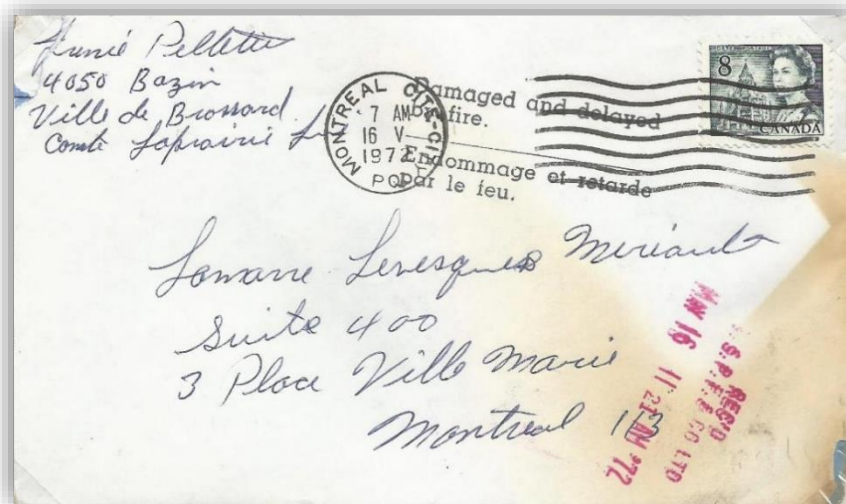 Pelletier
4050 Bazin
Ville de Brossard
Comté Laprairie
MONTREAL CITY-CITÉ
7 AM
16 V
1972
PQ
Damaged and delayed
by fire.
Endommage et retarde
par le feu.
8
CANADA
Lamarre Levesque Meriault
Suite 400
3 Place Ville Marie
Montreal 113
REC'D
CO LTD
MAY 16 11 21 AM '72